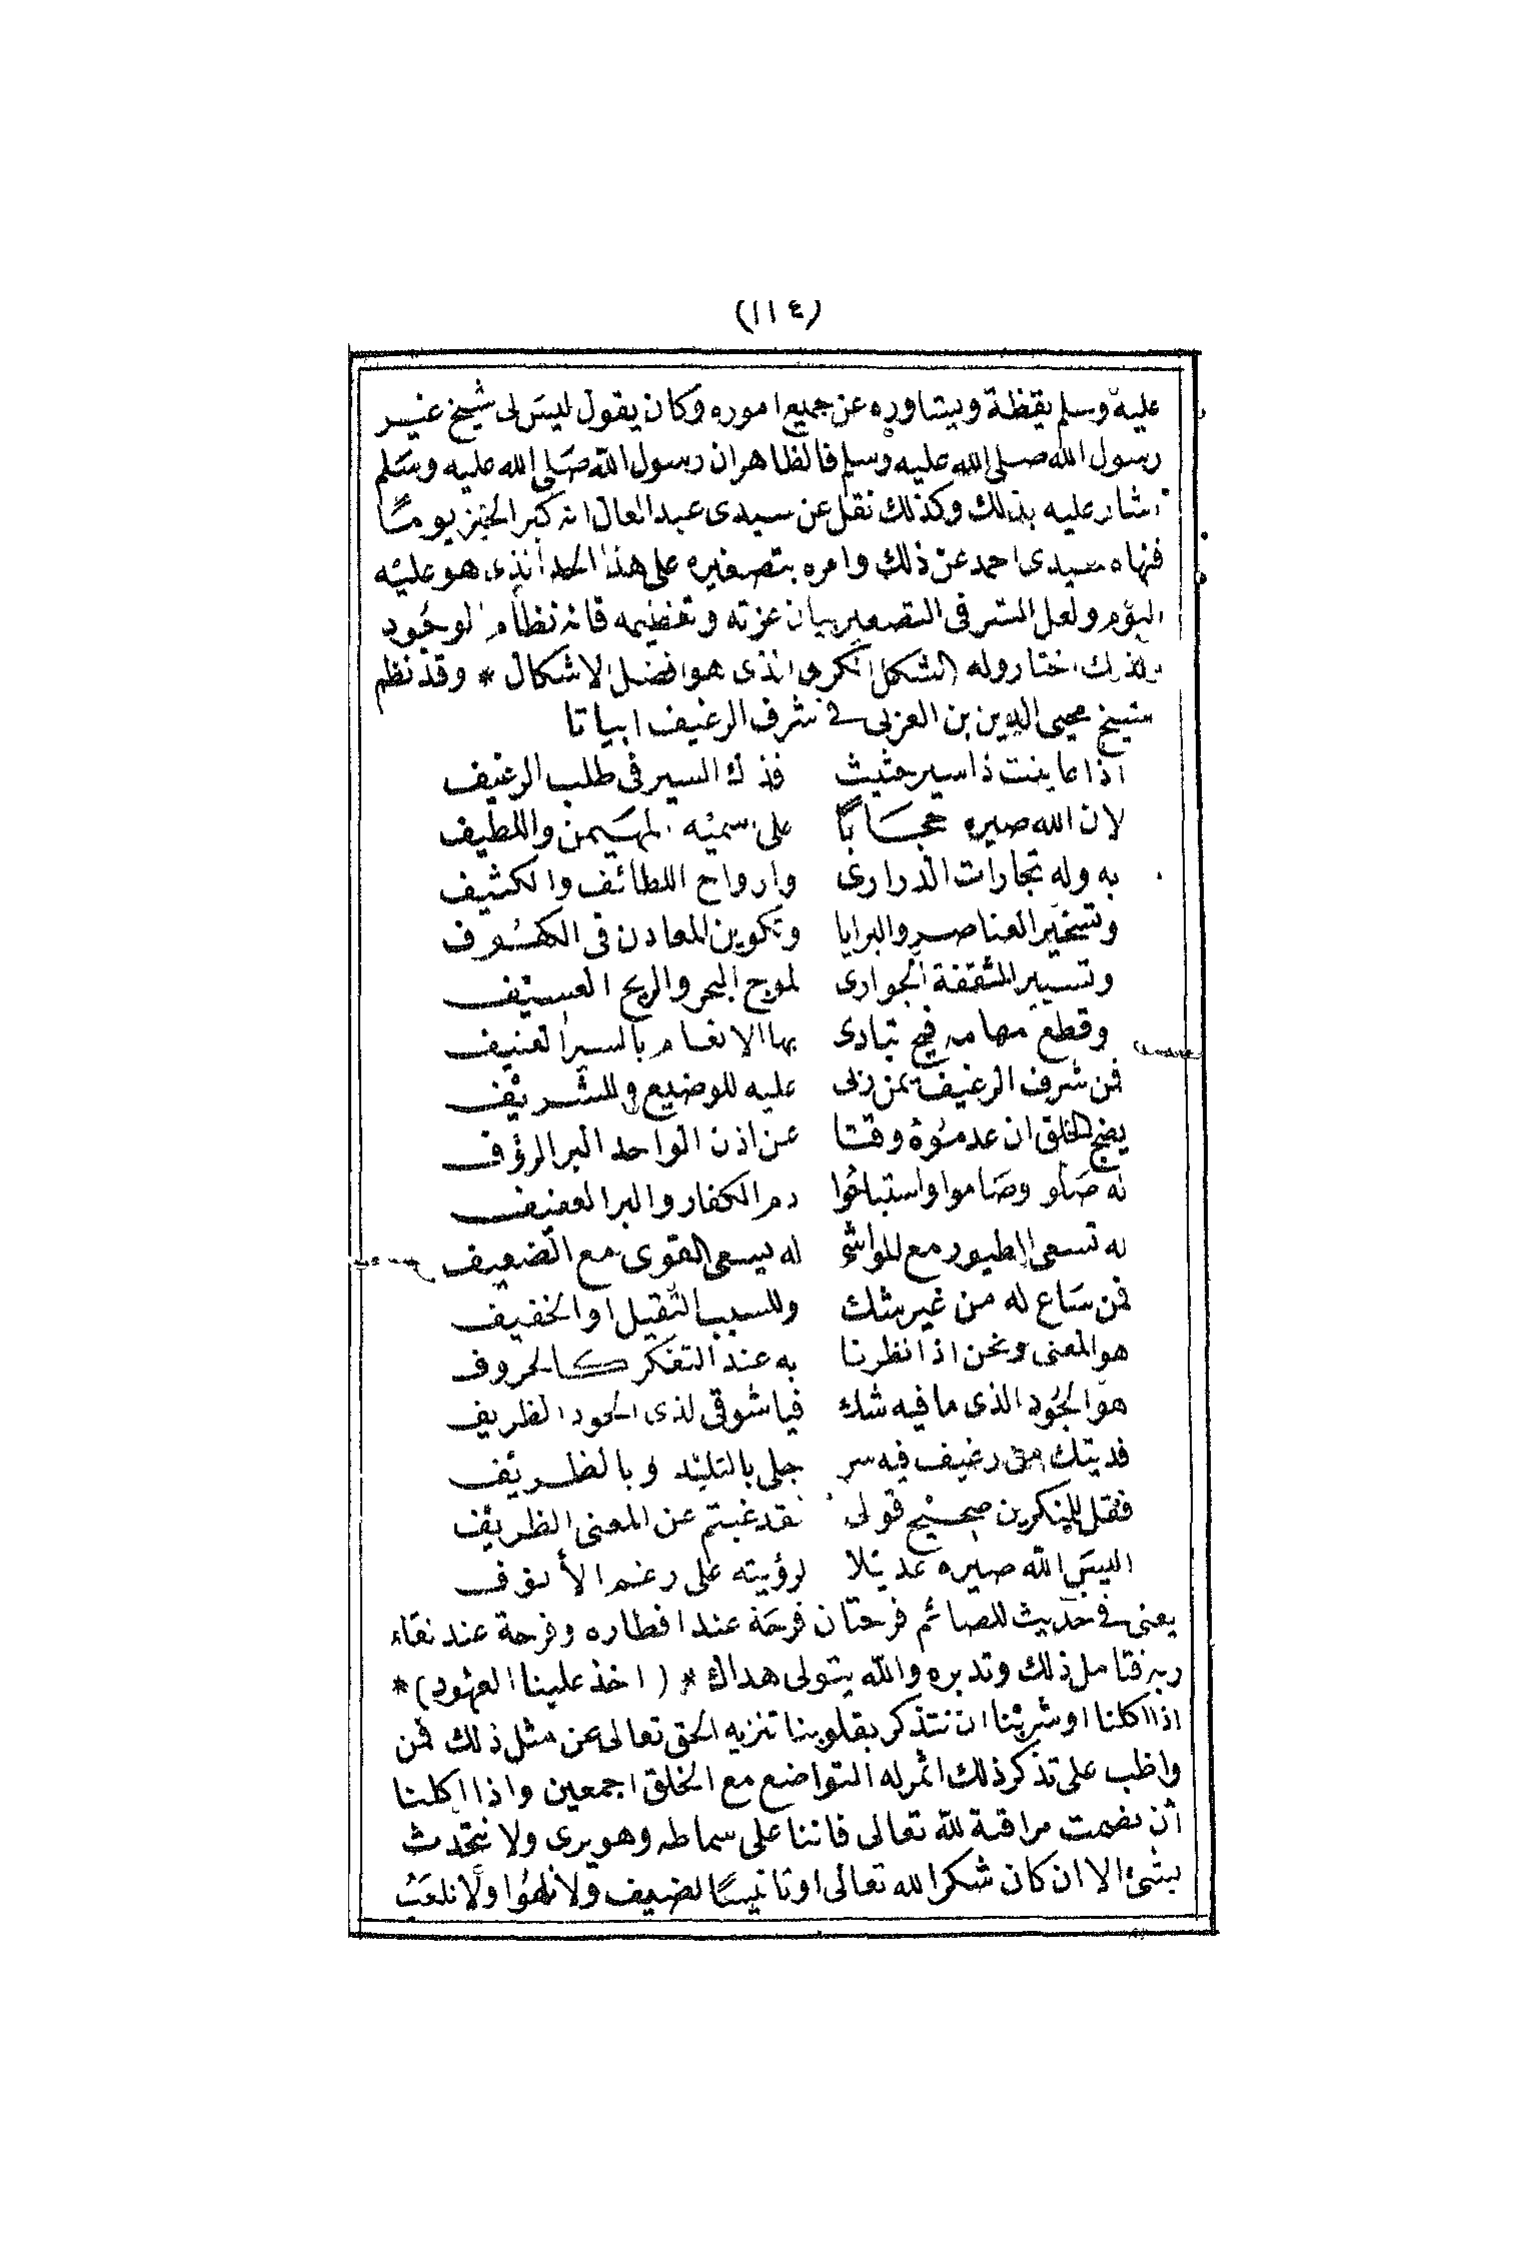 (١١٤)
عليه وسلم يقظة ويشاوره عن جميع اموره وكان يقول ليس لى شيخ غير
رسول الله صلى الله عليه وسلم فالظاهر ان رسول الله صلى الله عليه وسلم
اشار عليه بذلك وكذلك نقل عن سيدى عبد العال انه كبر الخبز يوما
فنهاه سيدى احمد عن ذلك وامره بتصغيره على هذا الحد الذى هو عليه
اليوم ولعل السر فى التصغير بيان عزته وتعظيمه فانه نظام الوجود
ولذلك اختار وله الشكل الكرى الذى هو افضل الاشكال * وقد نظم
شيخ محيى الدين بن العربى فى شرف الرغيف ابياتا
اذا عاينت ذا سير حثيث فذاك السير فى طلب الرغيف
لان الله صيره حجابا على اسميه المهيمن واللطيف
به وله تجارات الدرارى وارواح اللطائف والكثيف
وتسخير العناصر والبرايا وتكوين المعادن فى الكهوف
وتسيير المثقفة الجوارى لموج البحر والريح العسيف
وقطع مهامه فيح تبادى بها الانعام بالسير العنيف
فمن شرف الرغيف يمن ربى عليه للوضيع وللشريف
يضج الخلق ان عدموه وقتا عن اذن الواحد البر الرؤف
له صلو وصاموا واستباحوا دم الكفار والبر العفيف
له تسعى الطيور مع المواشى له يسعى القوى مع الضعيف
فمن ساع له من غير شك وللسبب الثقيل او الخفيف
هو المعنى ونحن اذا نظرنا به عند التفكر كالحروف
هو الجود الذى ما فيه شك فيا شوقى لذى الجود الظريف
فديتك من رغيف فيه سر جلى بالتليد وبالظريف
فقل للمنكرين صحيح قولى لقد غبتم عن المعنى الظريف
اليس الله صيره عديلا لرؤيته على رغم الأنوف
يعنى فى حديث للصائم فرحتان فرحة عند افطاره وفرحة عند لقاء
ربه فتامل ذلك وتدبره والله يتولى هداك * (اخذ علينا العهود) *
اذا اكلنا او شربنا ان نتذكر بقلوبنا تنزيه الحق تعالى عن مثل ذلك فمن
واظب على تذكر ذلك اثمر له التواضع مع الخلق اجمعين واذا اكلنا
أن نصمت مراقبة لله تعالى فاننا على سماطه وهو يرى ولا نتحدث
بشئ الا ان كان شكرا لله تعالى او تانيسا لضيف ولا نلهوا ولا نلعب